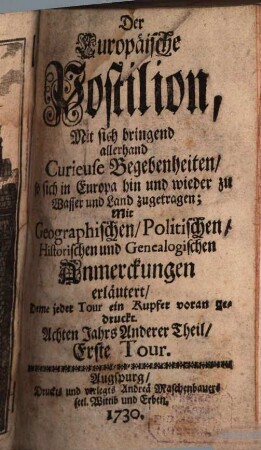 Der
Europäische
Postilion,
Mit sich bringend
allerhand
Curieuse Begebenheiten/
sich in Europa hin und wieder zu
Wasser und Land zugetragen;
Mit
Geographischen/ Politischen/
Historischen und Genealogischen
Anmerckungen
erläutert/
Deme jeder Tour ein Kupfer voran ge-
druckt.
Achten Jahrs Anderer Theil/
Erste Tour.
Augspurg/
Druckts und verlegts Andreä Maschenbauers
seel. Wittib und Erben.
1730.